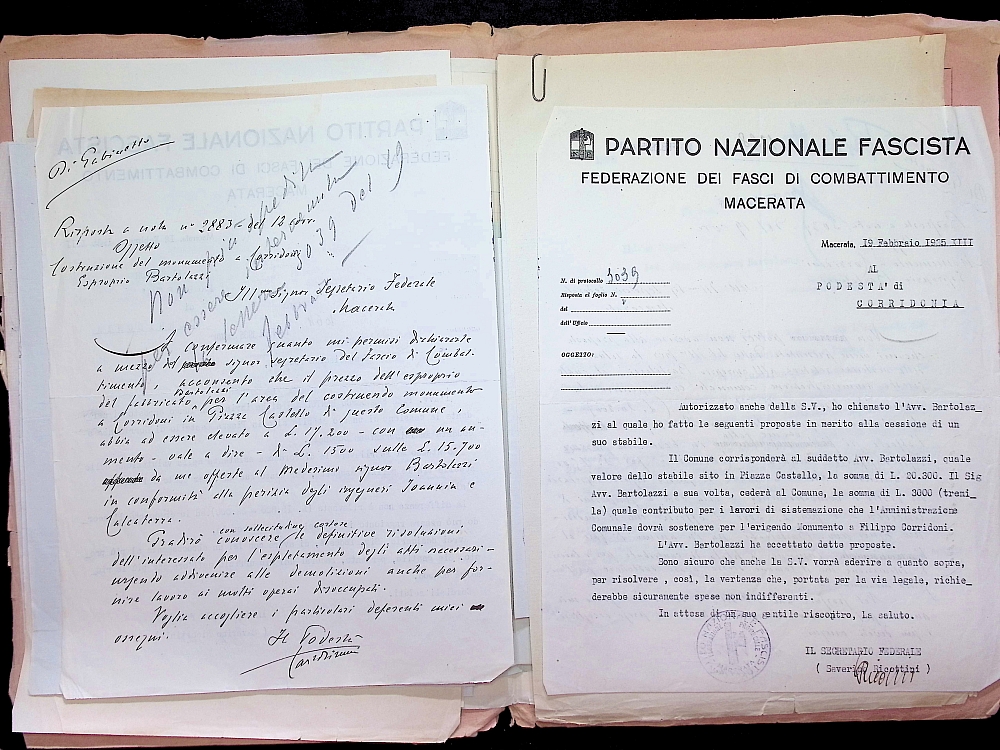 Di Gabinetto
Risposta a nota n° 2883 del 12 corr.
Oggetto
Costruzione del monumento a Corridoni
Esproprio Bartolazzi
Non più spedita
per essere intervenuta
lettera 3039 del 19
febbraio
Ill.mo Signor Segretario Federale
Macerata
A confermare quanto mi permisi dichiarare
a mezzo del signor segretario del fascio di Combat-
timento, acconsento che il prezzo dell'esproprio
del fabbricato Bartolazzi per l'area del costruendo monumento
a Corridoni in Piazza Castello di questo Comune,
abbia ad essere elevato a £. 17.200 - con un au-
mento - vale a dire - di £. 1500 sulle £. 15.700
da me offerte al medesimo signor Bartolazzi
in conformità alla perizia degli ingegneri Ioannia e
Calcaterra.
Gradirò con sollecitudine cortese conoscere le definitive risoluzioni
dell'interessato per l'espletamento degli atti necessari -
urgendo addivenire alle demolizioni anche per for-
nire lavoro ai molti operai disoccupati.
Voglia accogliere i particolari deferenti miei
ossequi.
Il Podestà
PARTITO NAZIONALE FASCISTA
FEDERAZIONE DEI FASCI DI COMBATTIMENTO
MACERATA
Macerata, 19 Febbraio 1935 XIII
N. di protocollo 3039
Risposta al foglio N.
del
dell'Ufficio
OGGETTO:
AL
PODESTA' di
CORRIDONIA
Autorizzato anche dalla S.V., ho chiamato l'Avv. Bartolaz_
zi al quale ho fatto le seguenti proposte in merito alla cessione di un
suo stabile.
Il Comune corrisponderà al suddetto Avv. Bartolazzi, quale
valore dello stabile sito in Piazza Castello, la somma di L. 20.300. Il Sig
Avv. Bartolazzi a sua volta, cederà al Comune, la somma di L. 3000 (tremi_
la) quale contributo per i lavori di sistemazione che l'Amministrazione
Comunale dovrà sostenere per l'erigendo Monumento a Filippo Corridoni.
L'Avv. Bartolazzi ha accettato dette proposte.
Sono sicuro che anche la S.V. vorrà aderire a quanto sopra,
per risolvere , così, la vertenza che, portata per la via legale, richie_
derebbe sicuramente spese non indifferenti.
In attesa di un suo gentile riscontro, la saluto.
IL SEGRETARIO FEDERALE
( Saverino Ricottini )